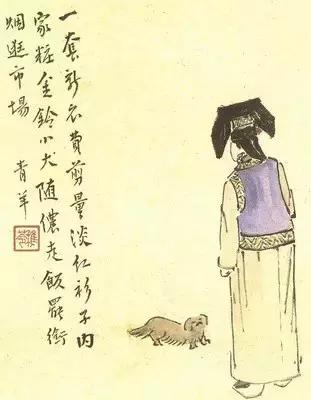 一套新衣費剪量淡红衫子内
家粧金鈴小犬随儂走飯罷銜
烟逛市場 青羊